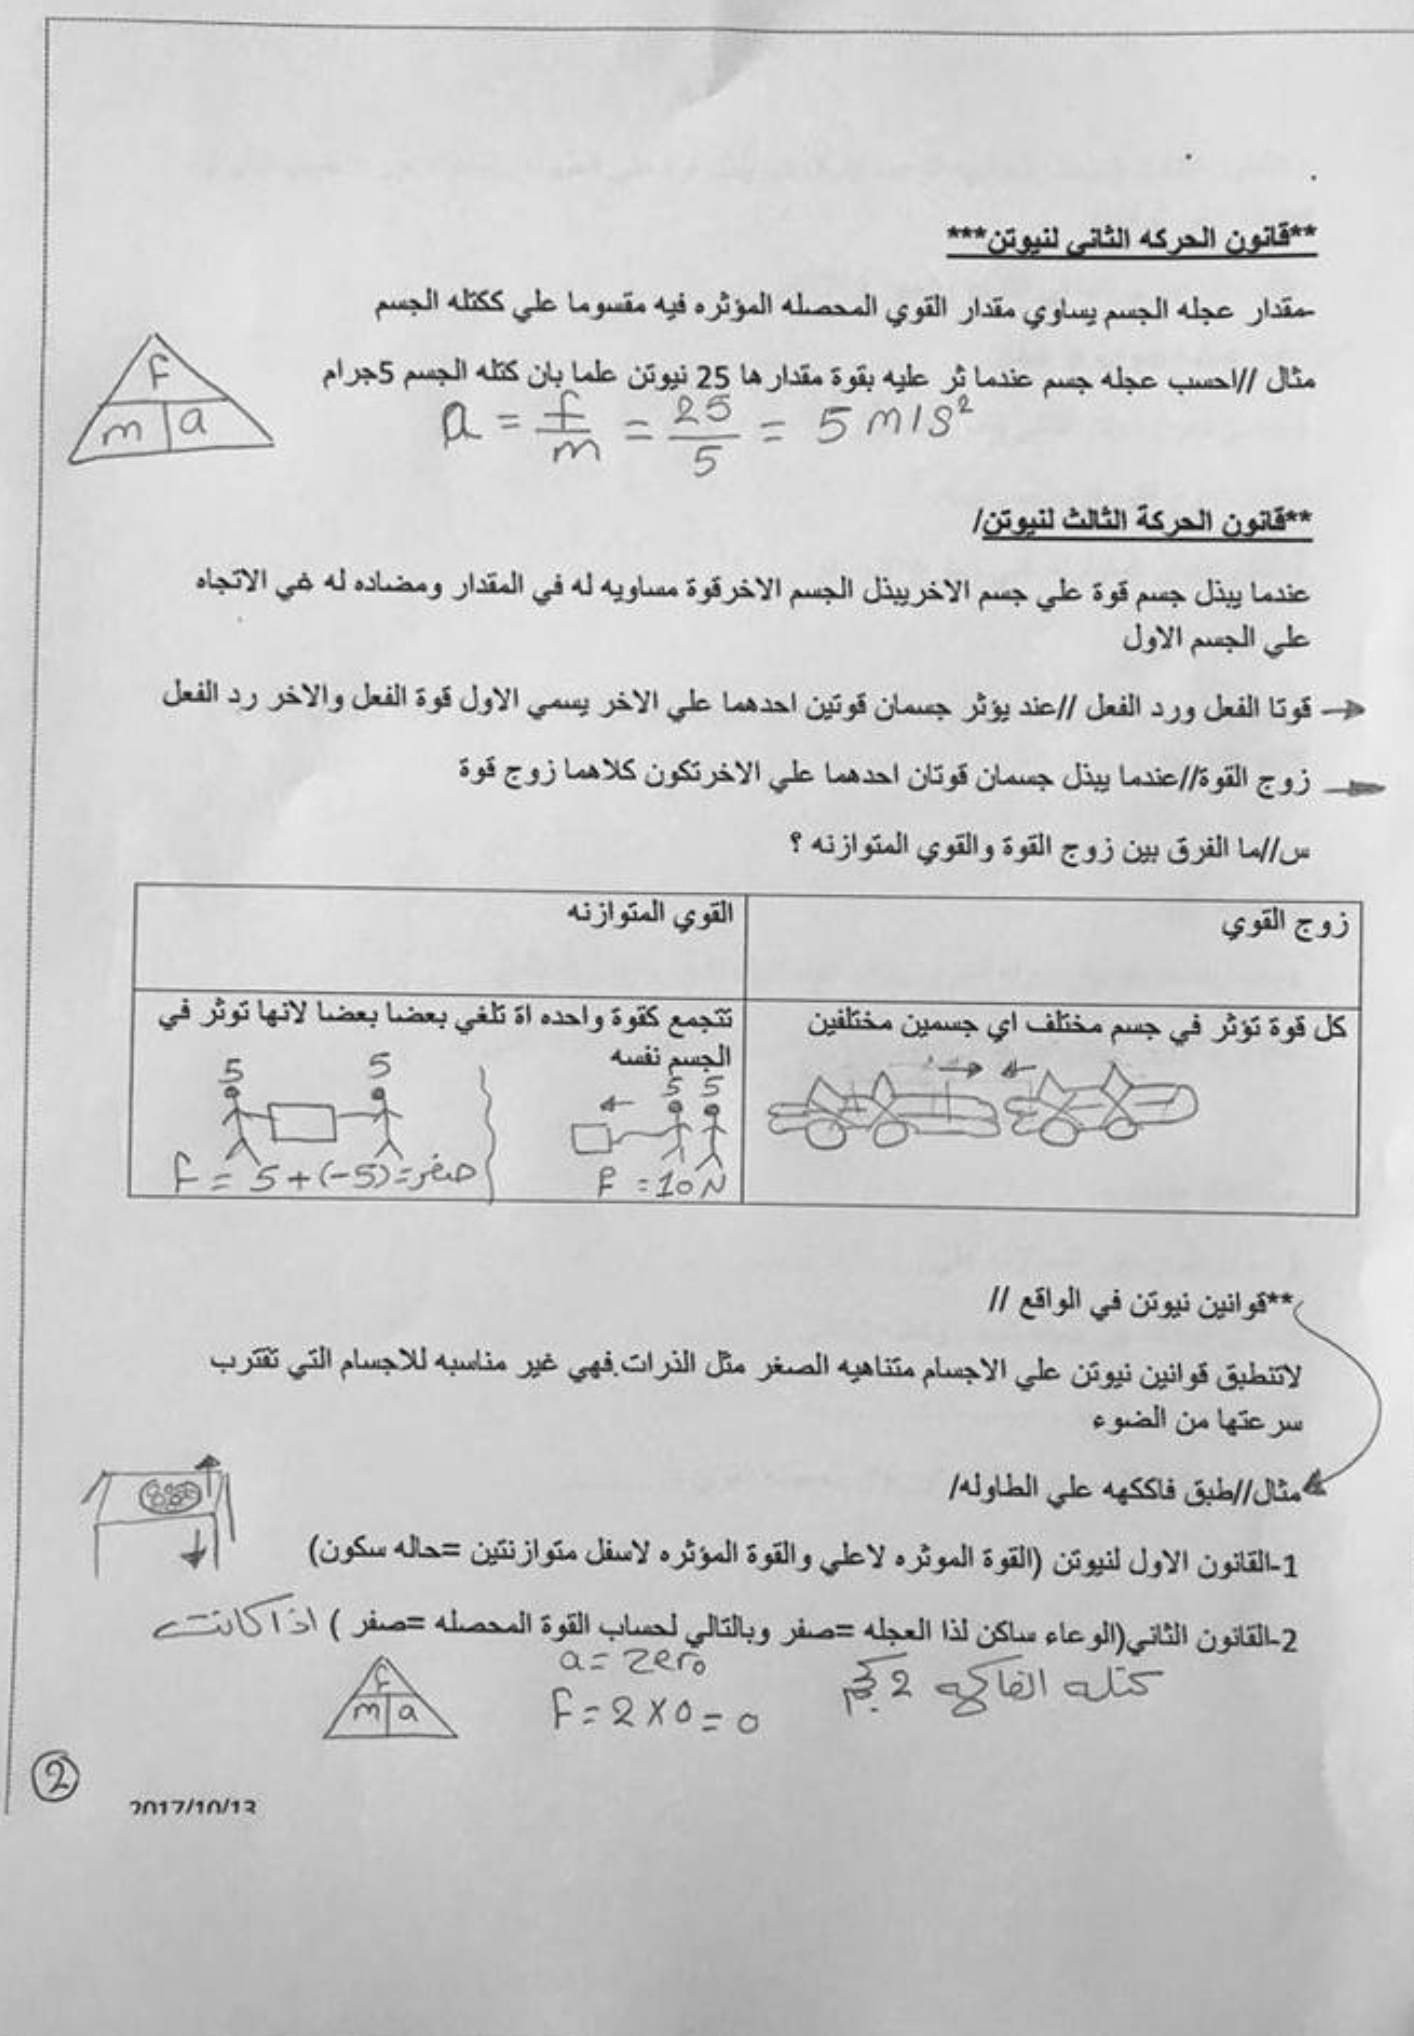 **قانون الحركه الثاني لنيوتن***
-مقدار عجله الجسم يساوي مقدار القوي المحصله المؤثره فيه مقسوما علي ككتله الجسم
مثال //احسب عجله جسم عندما ثر عليه بقوة مقدار ها 25 نيوتن علما بان كتله الجسم 5جرام
f
m | a
a = f/m = 25/5 = 5 m/s²
**قانون الحركة الثالث لنيوتن/
عندما يبذل جسم قوة علي جسم الاخريبذل الجسم الاخرقوة مساويه له في المقدار ومضاده له غي الاتجاه
علي الجسم الاول
قوتا الفعل ورد الفعل //عند يؤثر جسمان قوتين احدهما علي الاخر يسمي الاول قوة الفعل والاخر رد الفعل
زوج القوة//عندما يبذل جسمان قوتان احدهما علي الاخرتكون كلاهما زوج قوة
س//ما الفرق بين زوج القوة والقوي المتوازنه ؟
زوج القوي
القوي المتوازنه
كل قوة تؤثر في جسم مختلف اي جسمين مختلفين
تتجمع كقوة واحده اة تلغي بعضا بعضا لانها توثر في
الجسم نفسه
5 5
F = 10 N
5 5
F = 5+(-5)= صفر
**قوانين نيوتن في الواقع //
لاتنطبق قوانين نيوتن علي الاجسام متناهيه الصغر مثل الذرات.فهي غير مناسبه للاجسام التي تقترب
سرعتها من الضوء
مثال//طبق فاككهه علي الطاوله/
1-القانون الاول لنيوتن (القوة الموثره لاعلي والقوة المؤثره لاسفل متوازنتين =حاله سكون)
2-القانون الثاني(الوعاء ساكن لذا العجله =صفر وبالتالي لحساب القوة المحصله =صفر ) اذا كانت
كتله الفاكهه 2 كجم
a = zero
F = 2 X 0 = 0
f
m | a
2
2017/10/13